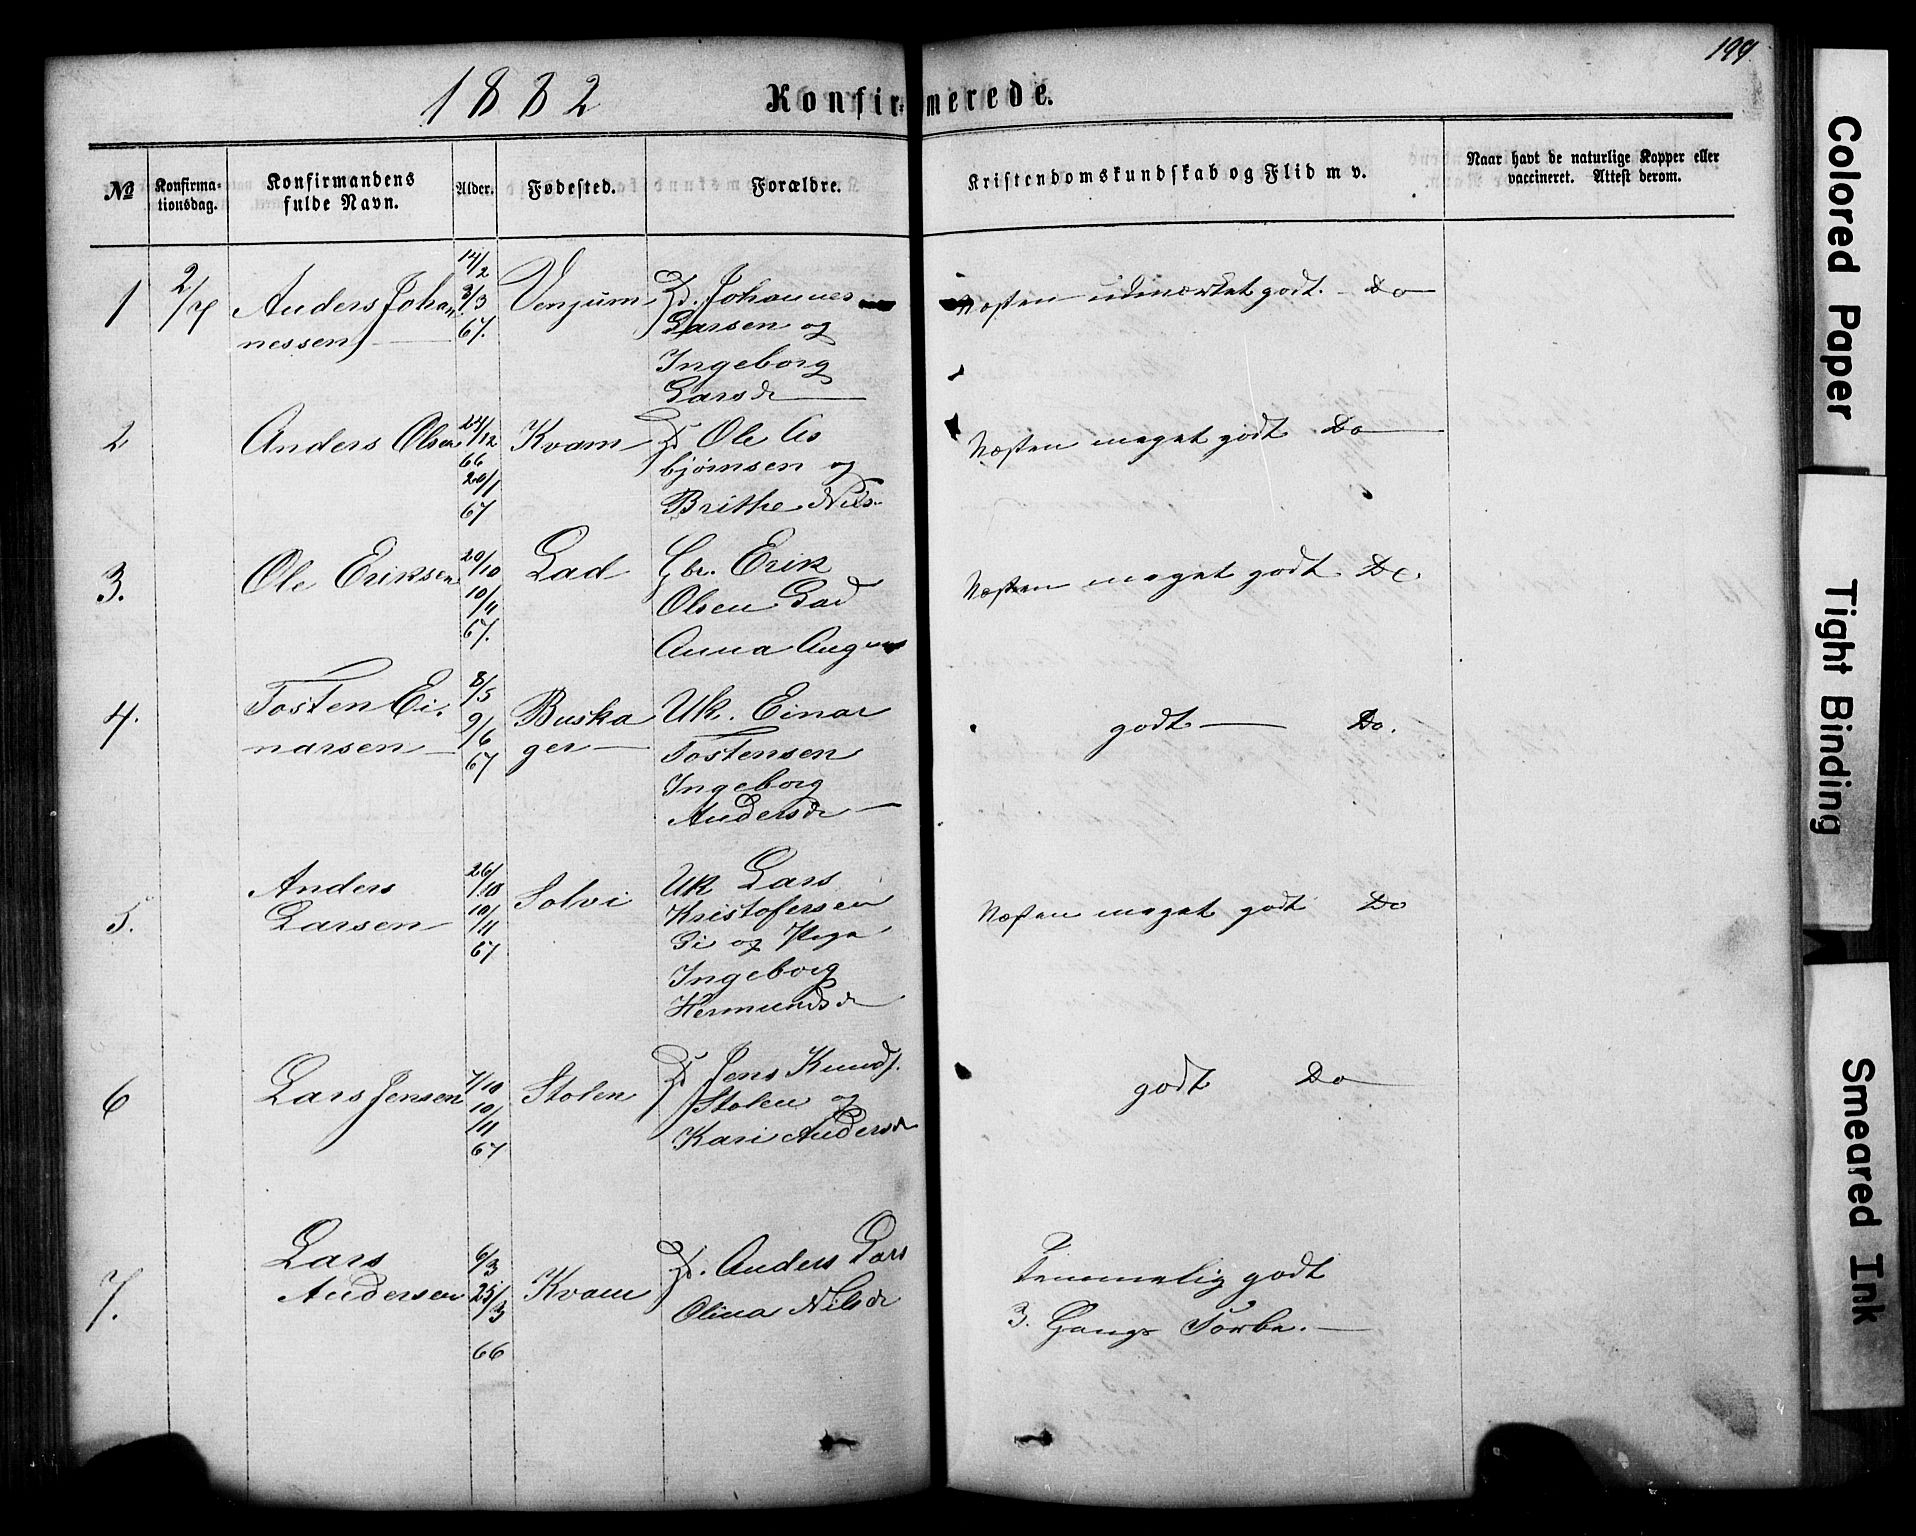 199
1882 Konfirmerede.
№ Konfirmationsdag. Konfirmandens fulde Navn. Alder. Fødested. Forældre. Kristendomskundskab og Flid m v. Naar havt de naturlige Kopper eller vaccineret. Attest derom.
1 2/7 Anders Johan 14/2 Venjum Johannes Næsten udmærket godt. Do
nessen 3/3 Larsen og
67. Ingeborg
Larsdr
2 Anders Olsen 24/12 Kvam Ole As Næsten meget godt Do
66 bjørnsen og
20/1 Brithe Nils
67
3. Ole Eriksen 20/10 Lad Gbr. Erik Næsten meget godt Do.
10/11 Olsen Lad
67. Anna
4. Tosten Ei. 8/5 Buska Uk. Einar godt Do.
narsen 9/6 ger Tostensen
67 Ingeborg
Andersdr
5. Anders 26/10 Solvi Uk Lars Næsten meget godt Do
Larsen 10/11 Kristofersen
67 og Pige
Ingeborg
Hermundsdr
6 Lars Jensen 7/10 Stolen Jens Knuds. godt Do
10/11 Stolen og
67 Kari Andersdr
7. Lars 6/3 Kvam Anders Lars Temmelig godt
Andersen 25/3 Olina Nilsdr 3. Gangs
66
Colored Paper
Tight Binding
Smeared Ink